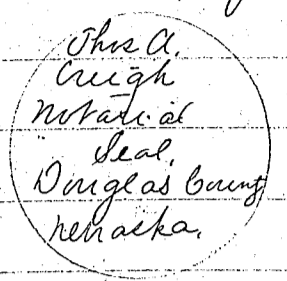 Thos A.
Creigh
Notarial
Seal.
Douglas County
Nebraska.